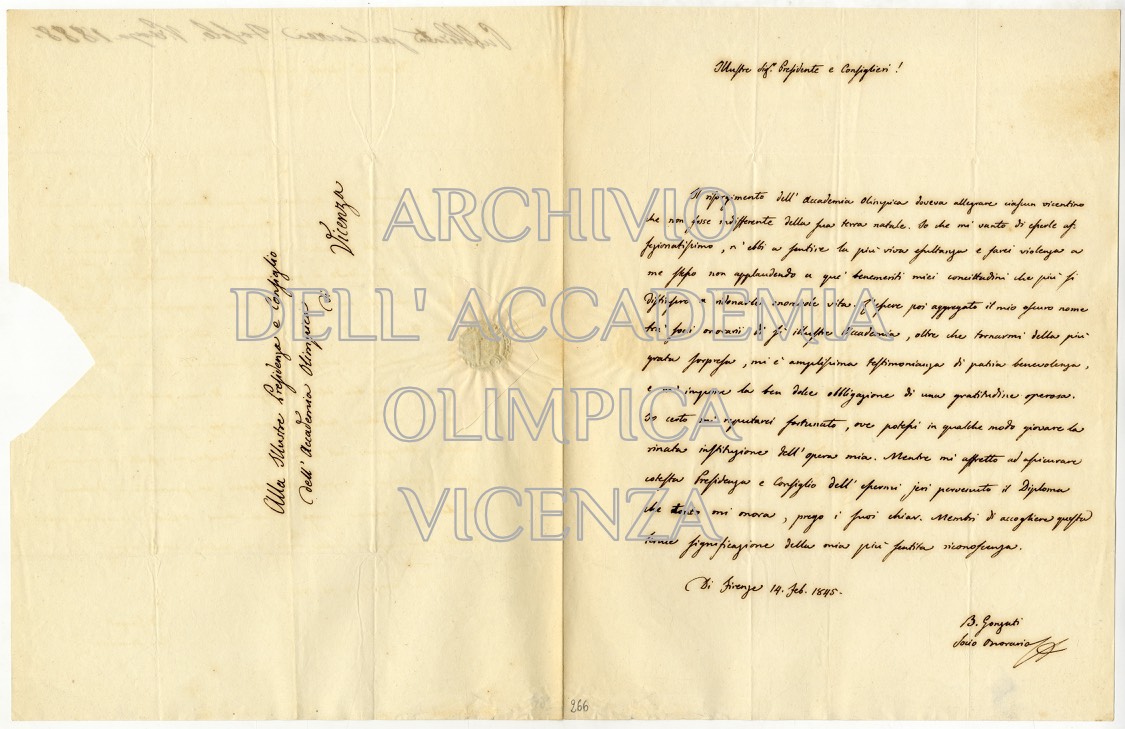 Illustre Sig.r Presidente e Consiglieri!
Il risorgimento dell' Accademia Olimpica doveva allegrare ciascun vicentino
che non fosse indifferente della sua terra natale. Io che mi vanto di esserle af-
fezionatissimo, n' ebbi a sentire la più viva esultanza e farei violenza a
me stesso non applaudendo a que' benemeriti miei concittadini che più si
distinsero a ridonarle onorevole vita. L'essere poi aggregato il mio oscuro nome
tra' socj onorarii di sì illustre Accademia, oltre che tornarmi della più
grata sorpresa, mi è amplissima testimonianza di patria benevolenza,
e m' impone la ben dolce obbligazione di una gratitudine operosa.
Io certo mi reputarei fortunato, ove potessi in qualche modo giovare la
rinata instituzione dell'opera mia. Mentre mi affretto ad assicurare
cotesta Presidenza e Consiglio dell'essermi jeri pervenuto il Diploma
che tanto mi onora, prego i suoi chiar. Membri di accogliere questa
significazione della mia più sentita riconoscenza.
Di Firenze 14. Feb. 1845.
B. Gonzati
Socio Onorario
Alla Illustre Presidenza e Consiglio
dell' Accademia Olimpica
di
Vicenza
266
ARCHIVIO
DELL' ACCADEMIA
OLIMPICA
VICENZA